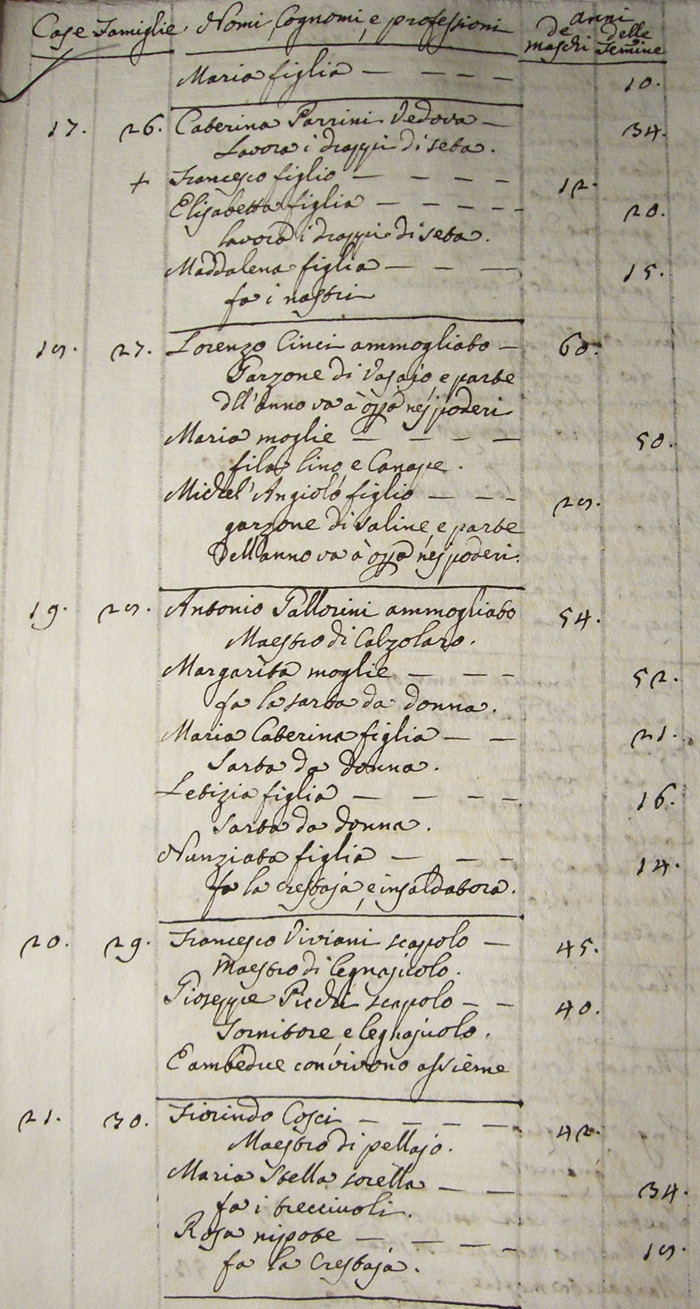 Case Famiglie Nomi, Cognomi, e professioni anni de maschi delle Femine
Maria figlia — — — — 10.
17. 26. Caterina Parrini Vedova — 34.
Lavora i drappi di seta.
+ Francesco figlio — — — — 12.
Elisabetta figlia — — — — 20.
lavora i drappi di seta.
Maddalena figlia — — — 15.
fa i nastri
18. 27. Lorenzo Cinci ammogliato — 60.
Garzone di Vasajo, e parte
dell'anno va à opp.ª ne i poderi
Maria moglie — — — — 50.
fila lino, e Canape.
Michel'Angiolo figlio — — — 28.
garzone di saline, e parte
dell'anno va à opp.ª ne i poderi.
19. 28. Antonio Pallorini ammogliato 54.
Maestro di Calzolaro.
Margarita moglie — — — 52.
fa la sarta da donna.
Maria Caterina figlia — — 21.
Sarta da donna.
Letizia figlia — — — — 16.
Sarta da donna.
Nunziata figlia — — — 14.
fa la crestaja, e insaldatora.
20. 29. Francesco Viviani scapolo — 45.
Maestro di legnajuolo.
Gioseppe Picchi scapolo — — 40.
Tornitore e legnajuolo.
E ambedue convivono assieme
21. 30. Fiorindo Cosci — — — — 42.
Maestro di pellajo.
Maria Stella sorella — — 34.
fa i trecciuoli.
Rosa nipote — — — — 18.
fa la Crestaja.